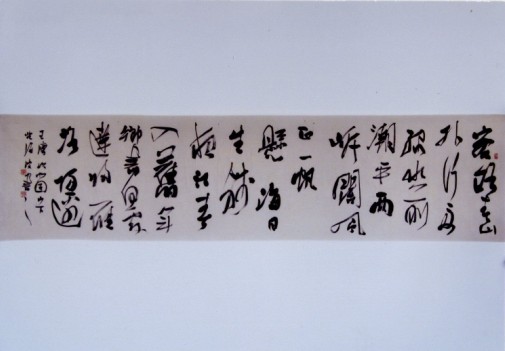 客路青山
外行舟
綠水前
潮平兩
岸闊風
正一帆
懸海日
生殘
夜江春
入舊年
鄉書何處
達歸雁
洛陽邊
王灣次北固山下